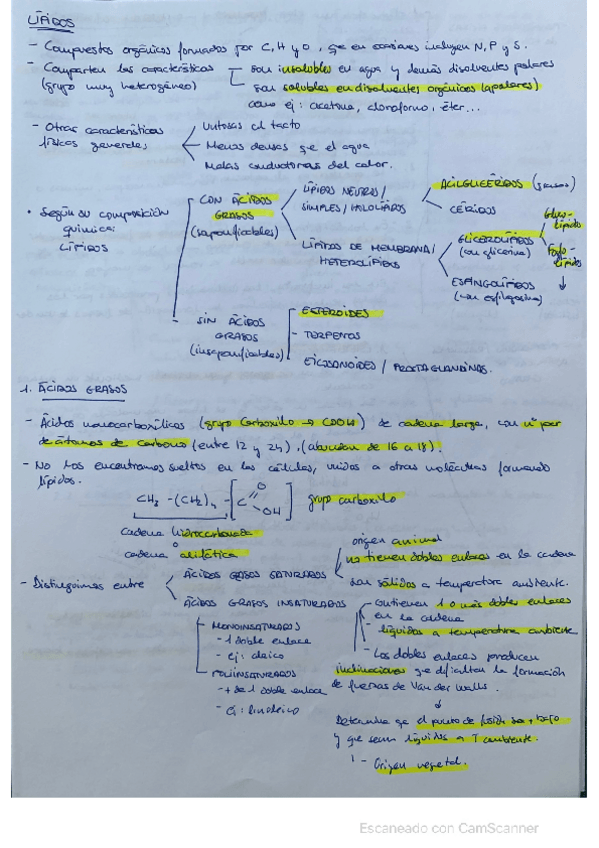 LÍPIDOS
- Compuestos orgánicos formados por C, H y O, que en ocasiones incluyen N, P y S.
- Comparten las características — son insolubles en agua y demás disolventes polares
(grupo muy heterogéneo) — son solubles en disolventes orgánicos (apolares)
como ej: acetona, cloroformo, éter...
- Otras características físicas generales
Untosas al tacto
Menos densas que el agua
Malas conductoras del calor.
• Según su composición química:
LÍPIDOS
CON ÁCIDOS GRASOS
(saponificables)
LÍPIDOS NEUTROS/
SIMPLES/HOLOLÍPIDOS
ACILGLICÉRIDOS (grasas)
CÉRIDOS
LÍPIDOS DE MEMBRANA/
HETEROLÍPIDOS
GLICEROLÍPIDOS
(con glicerina)
Gluco-
lípidos
Fosfo-
lípidos
ESFINGOLÍPIDOS
(con esfingosina)
- SIN ÁCIDOS GRASOS
(insaponificables)
- ESTEROIDES
- TERPENOS
- EICOSANOIDES / PROSTAGLANDINAS.
1. ÁCIDOS GRASOS
- Ácidos monocarboxílicos (grupo Carboxilo → COOH) de cadena larga, con nº par
de átomos de carbono (entre 12 y 24). (abundan de 16 a 18).
- No los encontramos sueltos en las células, unidos a otras moléculas formando
lípidos.
CH3 - (CH2)n - [C O OH] grupo carboxilo
cadena hidrocarbonada
o
cadena alifática
- Distinguimos entre
ÁCIDOS GRASOS SATURADOS
origen animal
no tienen dobles enlaces en la cadena
son sólidos a temperatura ambiente.
ÁCIDOS GRASOS INSATURADOS
- contienen 1 o más dobles enlaces
en la cadena
- líquidos a temperatura ambiente
- Los dobles enlaces producen
inclinaciones que dificultan la formación
de fuerzas de Van der Walls.
Determina que el punto de fusión sea + bajo
y que sean líquidos a T ambiente.
- Origen vegetal.
- MONOINSATURADOS
- 1 doble enlace
- ej: oleico
- POLIINSATURADOS
- + de 1 doble enlace
- Ej: linoleico
Escaneado con CamScanner